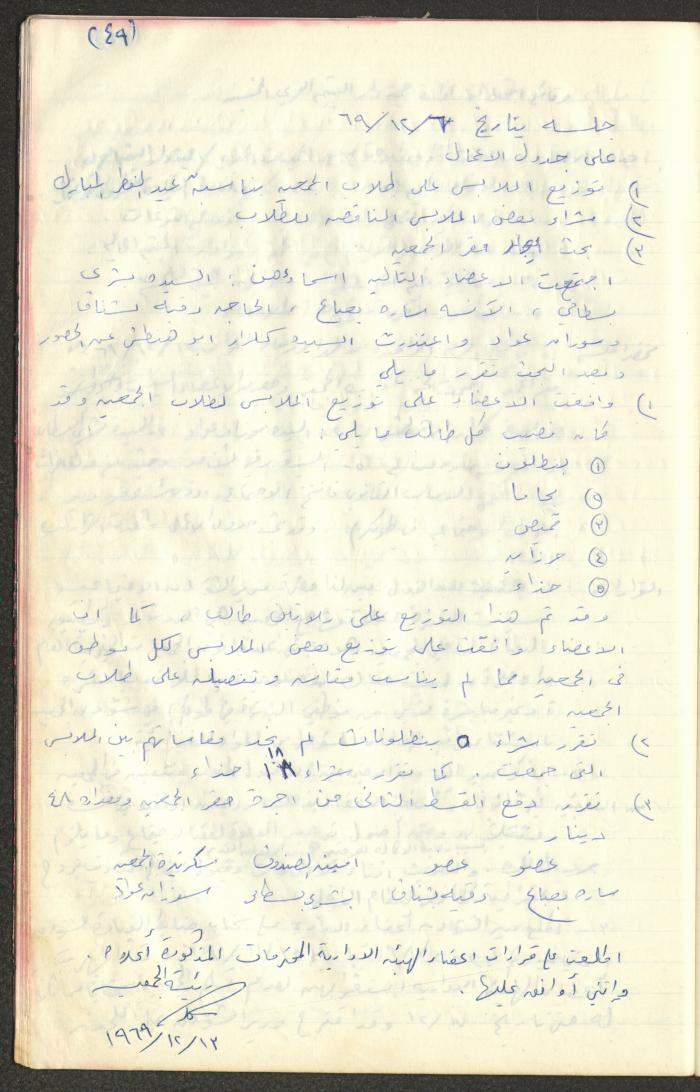 (٤٩)
جلسه بتاريخ ٦٩/١٢/٣
على جدول الاعمال
١) توزيع الملابس على طلاب الجمعيه بمناسبة عيد الفطر المبارك
٢) شراء بعض الملابس الناقصه للطلاب
٣) بحث ايجار مقر الجمعيه
اجتمعت الاعضاء التاليه اسماءهن : السيده بشرى
بسطامي ، الآنسه ساره بصباع ، الحاجه رقيه
وسوزان عواد واعتذرت السيده كلزار ابو هنطش عن الحضور
وبعد البحث تقرر ما يلي
١) وافقت الاعضاء على توزيع الملابس لطلاب الجمعيه وقد
كان نصيب كل طالب ما يلي :
① بنطلون
② بجاما
③ قميص
④ جرزايه
⑤ حذاء
وقد تم هذا التوزيع على ثلاثين طالب . كما ان
الاعضاء وافقت على توزيع بعض الملابس لكل موظف
في الجمعيه مما لم يناسب مقاسه وتفصيله على طلاب
الجمعيه
٢) تقرر شراء ٥ بنطلونات لم يجد مقاساتهم بين الملابس
التي جمعت . كما تقرر شراء ١٨ حذاء
٣) تقرر دفع القسط الثاني من اجرة مقر الجمعيه ومقداره ٤٨
دينار
عضوه عضو امينة الصندوق سكرتيرة الجمعيه
ساره بصباع رقيه بشرى بسطامي سوزان عواد
اطلعت على قرارات اعضاء الهيئه الاداريه المحترمات المذكورة أعلاه .
وانني أوافق عليها .
رئيسة الجمعيه
١٩٦٩/١٢/١٣